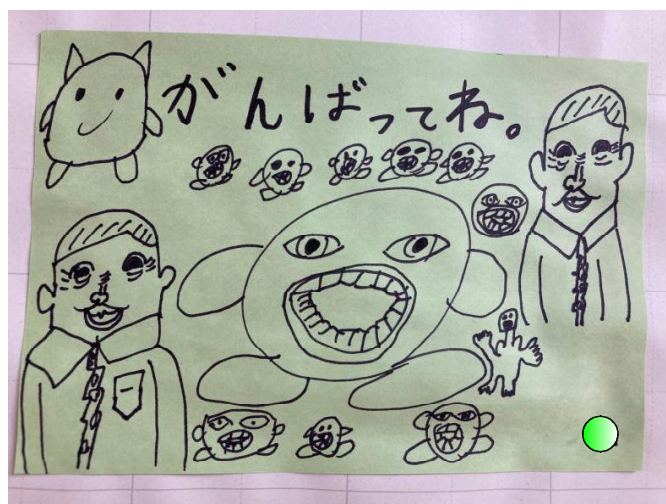 がんばってね。